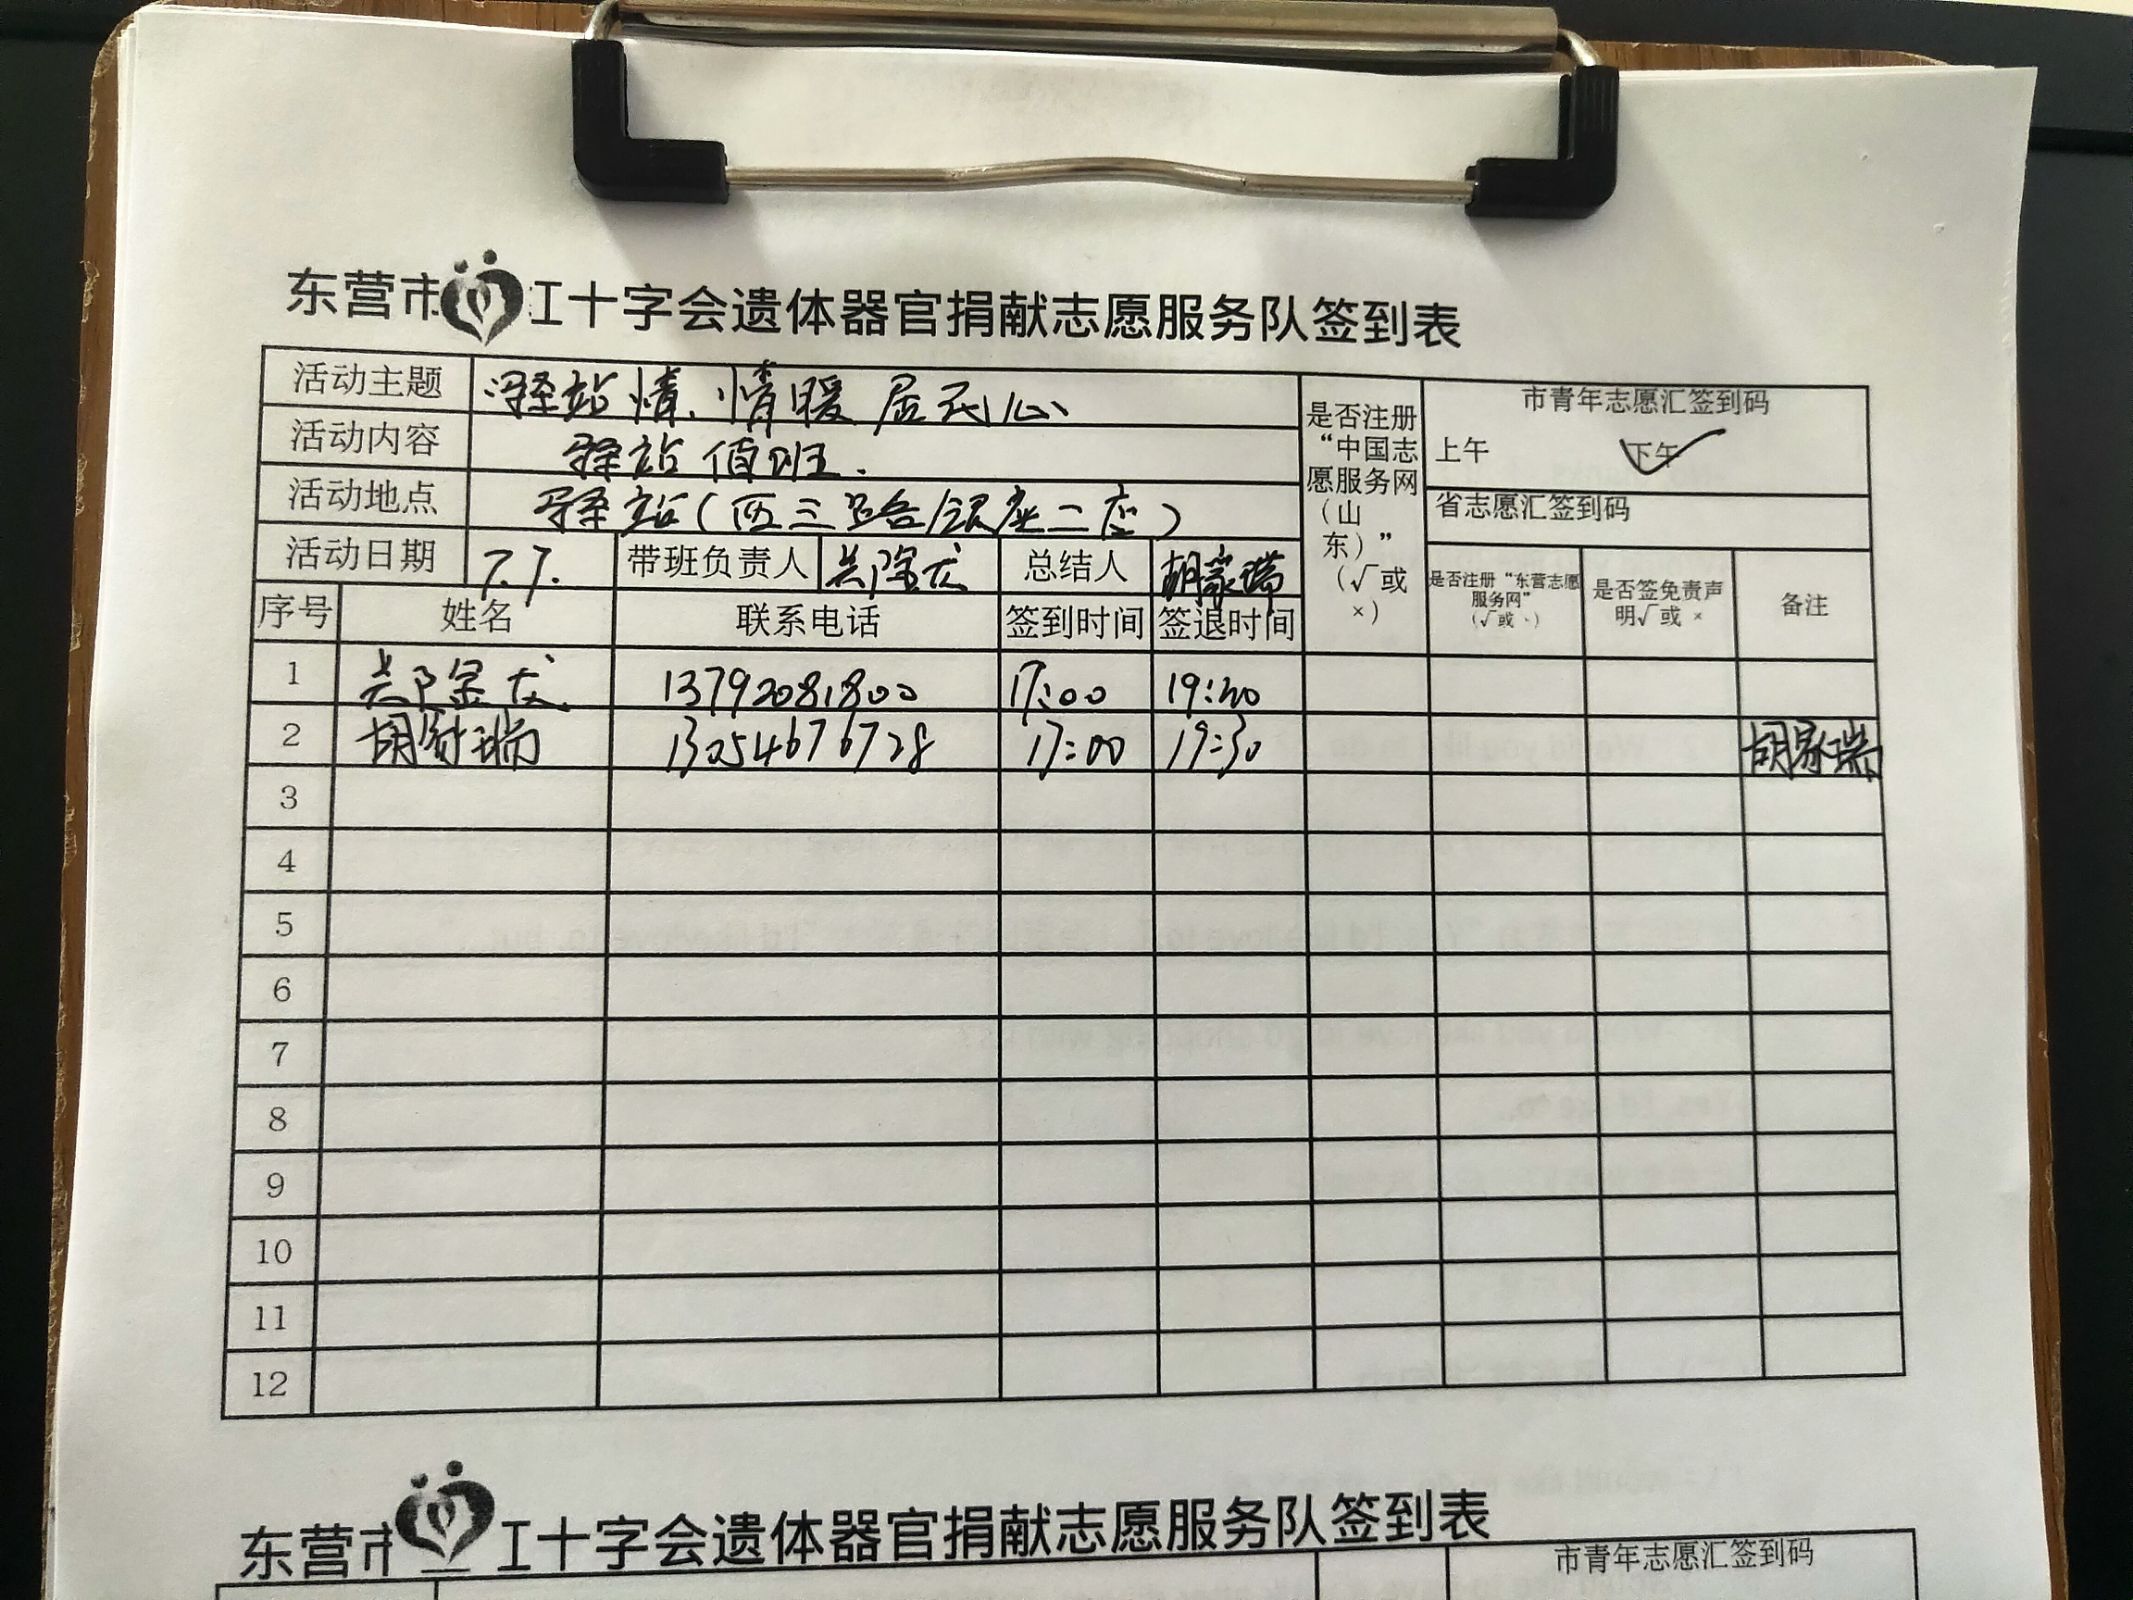 东营市红十字会遗体器官捐献志愿服务队签到表
活动主题 驿站情.情暖居民心
活动内容 驿站值班.
活动地点 驿站(西三路银座二座)
活动日期 7.7. 带班负责人 总结人 胡家瑞
是否注册“中国志愿服务网(山东)”(√或×)
市青年志愿汇签到码
上午 下午
省志愿汇签到码
是否注册“东营志愿服务网”
是否签免责声明√或×
备注
序号 姓名 联系电话 签到时间 签退时间
1 13792081800 17:00
2 胡家瑞 13054676728 17:00 19:30 胡家瑞
3
4
5
6
7
8
9
10
11
12
东营市红十字会遗体器官捐献志愿服务队签到表
市青年志愿汇签到码